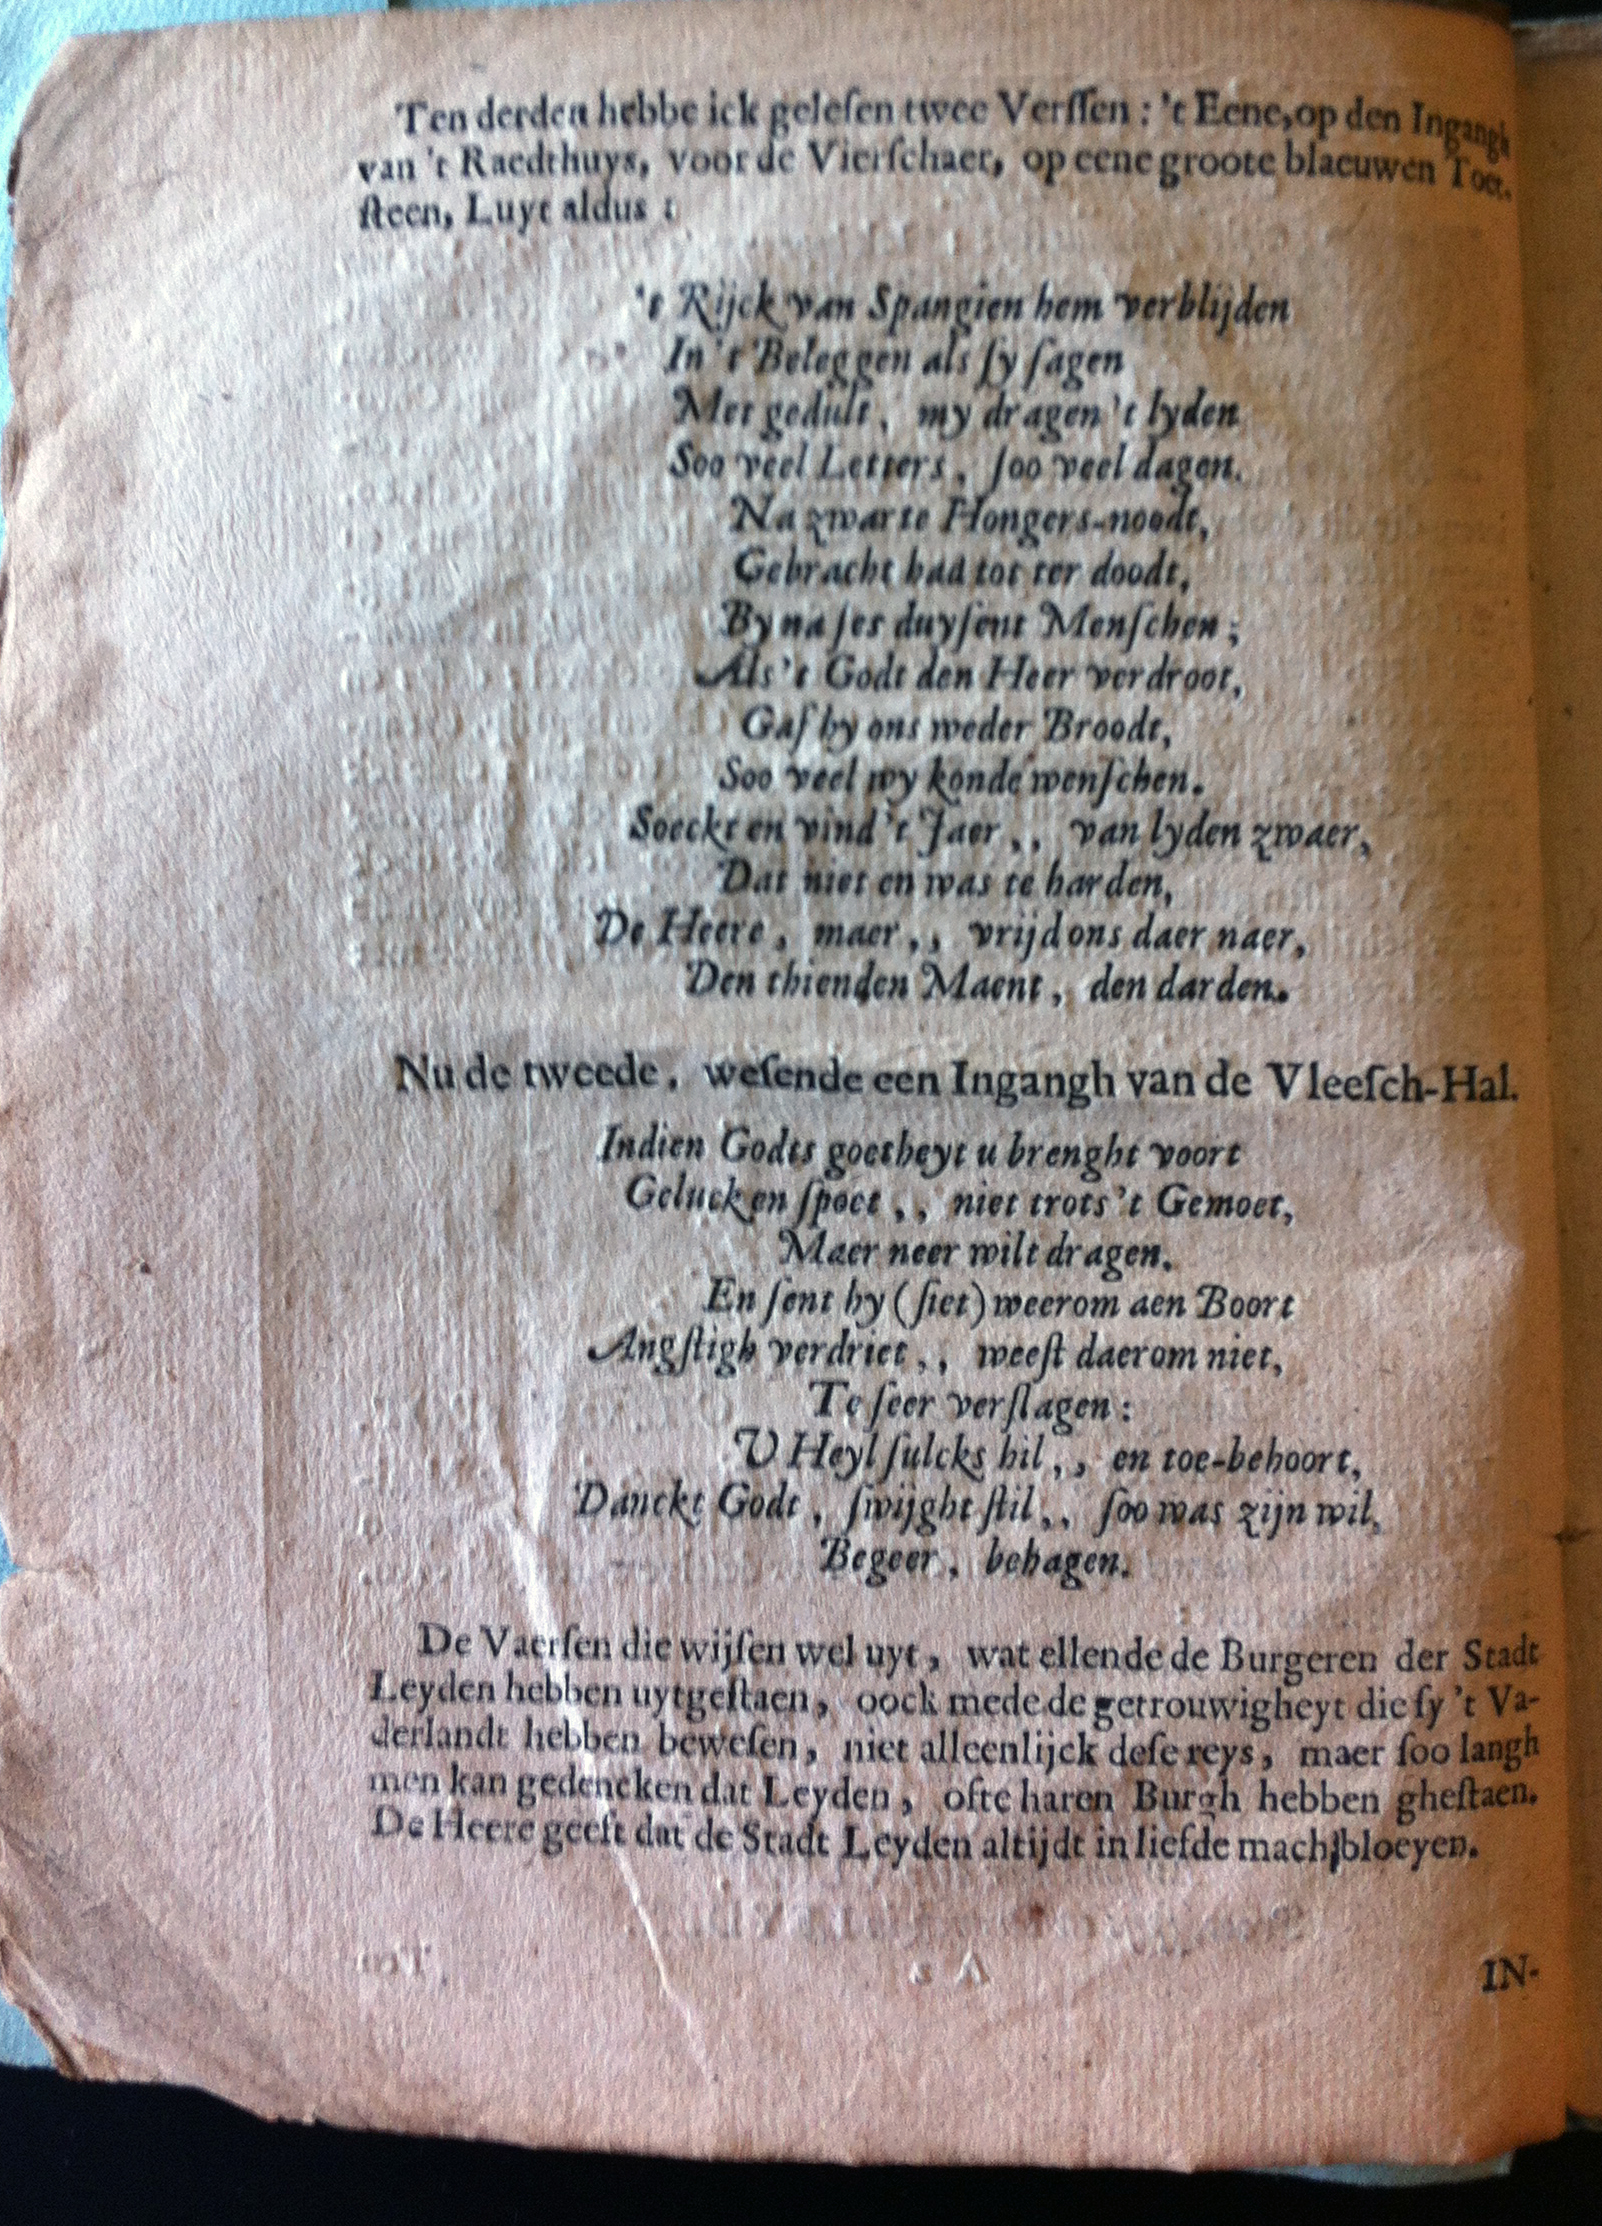 Ten derden hebbe ick geleſen twee Verſſen : 't Eene, op den Ingangh
van 't Raedthuys, voor de Vierſchaer, op eene groote blaeuwen Toet-
ſteen, Luyt aldus :
't Rijck van Spangien hem verblijden
In 't Beleggen als ſy ſagen
Met gedult, my dragen 't lyden
Soo veel Letters, ſoo veel dagen.
Na zwarte Hongers-noodt,
Gebracht had tot ter doodt,
By na ſes duyſent Menſchen ;
Als 't Godt den Heer verdroot,
Gaf hy ons weder Broodt,
Soo veel wy konde wenſchen.
Soeckt en vind 't Jaer ,, van lyden zwaer,
Dat niet en was te harden,
De Heere, maer ,, vrijd ons daer naer,
Den thienden Maent, den darden.
Nu de tweede, weſende een Ingangh van de Vleeſch-Hal.
Indien Godts goetheyt u brenght voort
Geluck en ſpoet ,, niet trots 't Gemoet,
Maer neer wilt dragen.
En ſent hy (ſiet) weerom aen Boort
Angſtigh verdriet ,, weeſt daerom niet,
Te ſeer verſlagen :
U Heyl ſulcks hil ,, en toe-behoort,
Danckt Godt, ſwijght ſtil ,, ſoo was zijn wil,
Begeer, behagen.
De Vaerſen die wijſen wel uyt, wat ellende de Burgeren der Stadt
Leyden hebben uytgeſtaen, oock mede de getrouwigheyt die ſy 't Va-
derlandt hebben beweſen, niet alleenlijck deſe reys, maer ſoo langh
men kan gedencken dat Leyden, ofte haren Burgh hebben gheſtaen.
De Heere geeft dat de Stadt Leyden altijdt in liefde mach bloeyen.
IN-